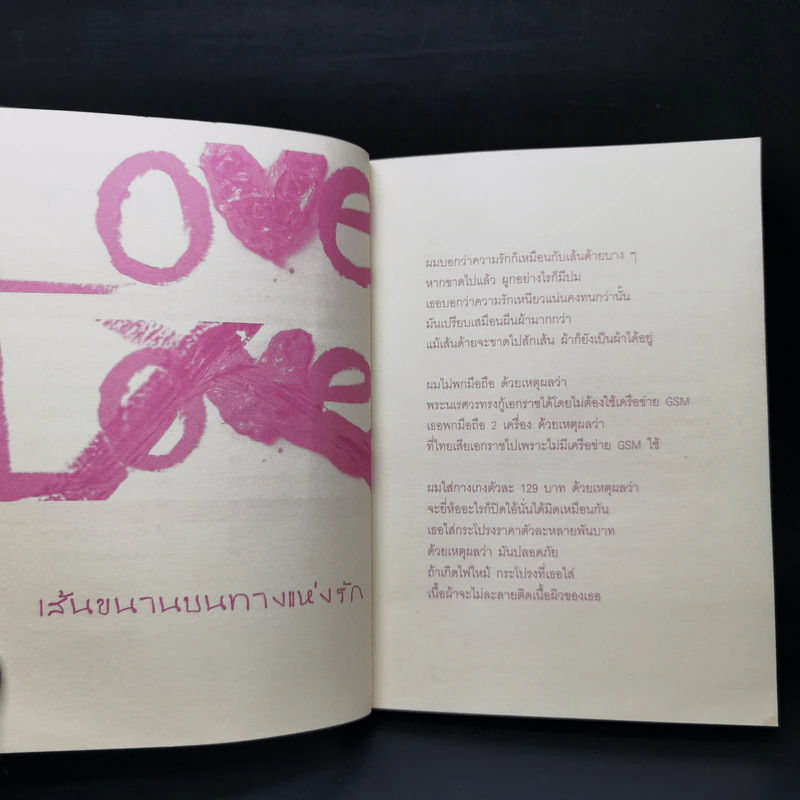 ove
Love
เส้นขนานบนทางแห่งรัก
ผมบอกว่าความรักก็เหมือนกับเส้นด้ายบาง ๆ
หากขาดไปแล้ว ผูกอย่างไรก็มีปม
เธอบอกว่าความรักเหนียวแน่นคงทนกว่านั้น
มันเปรียบเสมือนผืนผ้ามากกว่า
แม้เส้นด้ายจะขาดไปสักเส้น ผ้าก็ยังเป็นผ้าได้อยู่
ผมไม่พกมือถือ ด้วยเหตุผลว่า
พระนเรศวรทรงกู้เอกราชได้โดยไม่ต้องใช้เครือข่าย GSM
เธอพกมือถือ 2 เครื่อง ด้วยเหตุผลว่า
ที่ไทยเสียเอกราชไปเพราะไม่มีเครือข่าย GSM ใช้
ผมใส่กางเกงตัวละ 129 บาท ด้วยเหตุผลว่า
จะยี่ห้ออะไรก็ปิดไอ้นั่นได้มิดเหมือนกัน
เธอใส่กระโปรงราคาตัวละหลายพันบาท
ด้วยเหตุผลว่า มันปลอดภัย
ถ้าเกิดไฟไหม้ กระโปรงที่เธอใส่
เนื้อผ้าจะไม่ละลายติดเนื้อผิวของเธอ